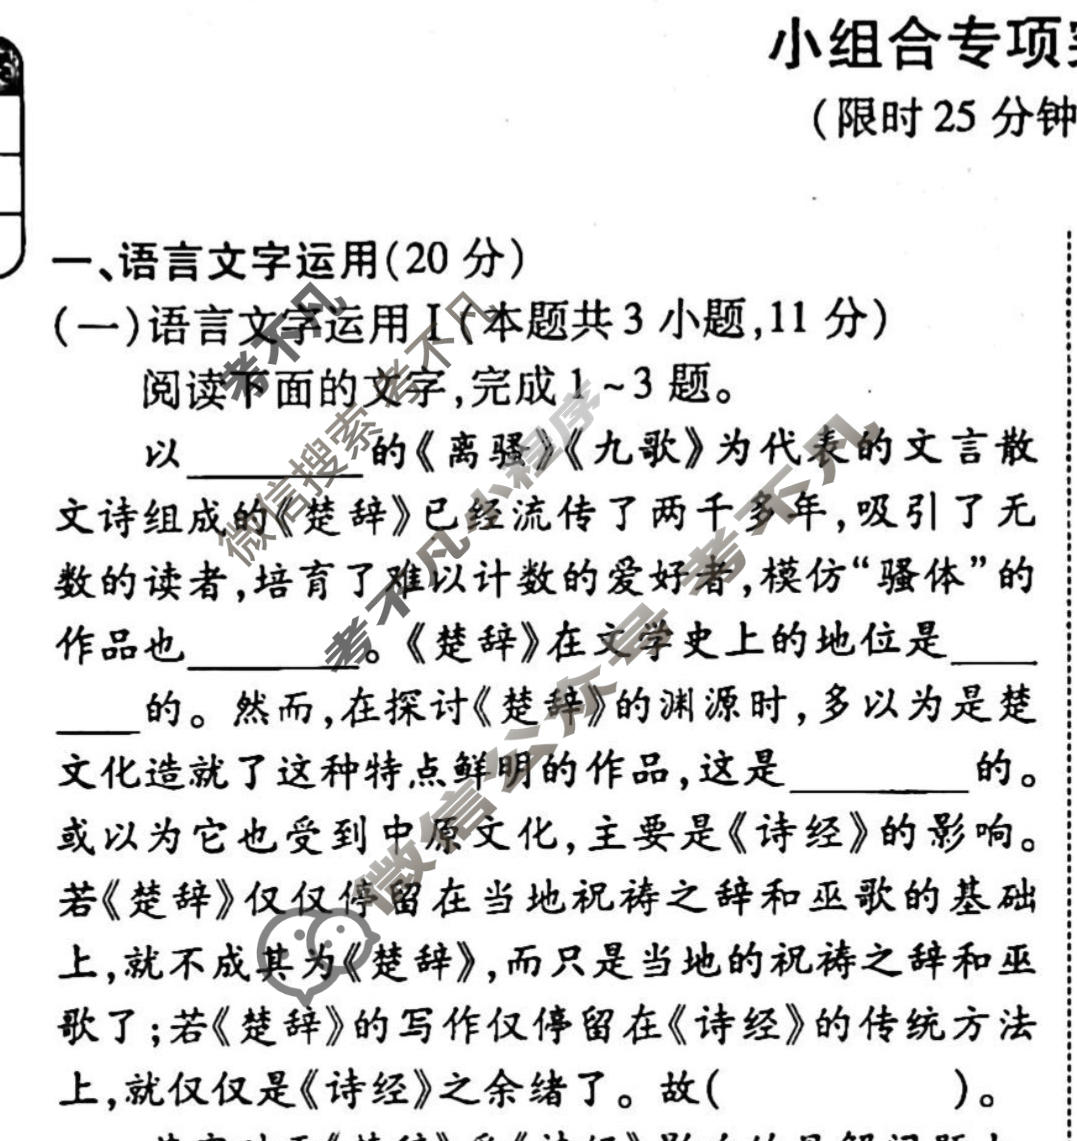 小组合专项
(限时25分钟
一、语言文字运用(20分)
(一)语言文字运用Ⅰ(本题共3小题,11分)
阅读下面的文字,完成1~3题。
以________的《离骚》《九歌》为代表的文言散
文诗组成的《楚辞》已经流传了两千多年,吸引了无
数的读者,培育了难以计数的爱好者,模仿“骚体”的
作品也________。《楚辞》在文学史上的地位是____
____的。然而,在探讨《楚辞》的渊源时,多以为是楚
文化造就了这种特点鲜明的作品,这是________的。
或以为它也受到中原文化,主要是《诗经》的影响。
若《楚辞》仅仅停留在当地祝祷之辞和巫歌的基础
上,就不成其为《楚辞》,而只是当地的祝祷之辞和巫
歌了;若《楚辞》的写作仅停留在《诗经》的传统方法
上,就仅仅是《诗经》之余绪了。故(　　　　　)。
考不凡
微信搜索考不凡
考不凡小程序
微信公众号 考不凡